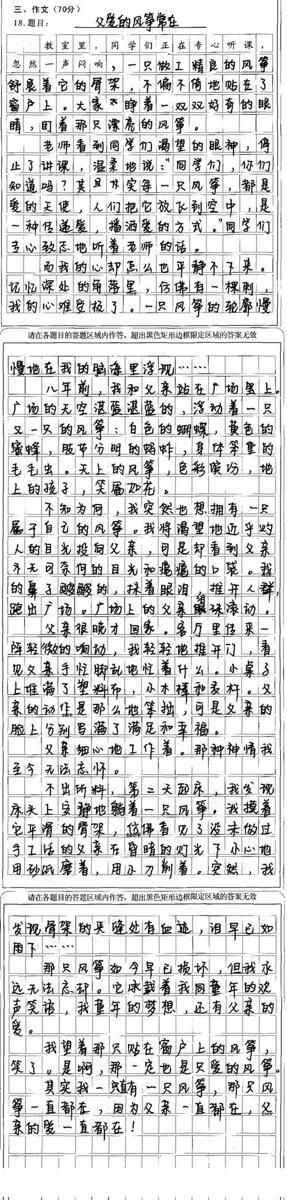 三、作文（70分）
18.题目： 父爱的风筝常在
教室里，同学们正在专心听课，
忽然一声闷响，一只做工精良的风筝
舒展着它的骨架，不偏不倚地贴在了
窗户上。大家睁着一双双好奇的眼
睛，盯着那只漂亮的风筝。
老师看到同学们渴望的眼神，停
止了讲课，温柔地说："同学们，你们
知道吗？其实每一只风筝，都是
爱的天使，人们把它放飞到空中，是
一种传递爱，播洒爱的方式。"同学们
专心致志地听着老师的话。
而我的心却怎么也平静不下来。
记忆深处的角落里，仿佛有一根刺，
我的心难受极了。一只风筝的轮廓慢
请在各题目的答题区域内作答，超出黑色矩形边框限定区域的答案无效
慢地在我的脑海里浮现……
八年前，我和父亲站在广场上。
广场的天空湛蓝湛蓝的，浮动着一只
又一只的风筝：白色的蝴蝶，黄色的
蜜蜂，肢节分明的蜻蜓，身体笨重的
毛毛虫。天上的风筝，色彩缤纷，地
上的孩子，笑面如花。
不知为何，我突然也想拥有一只
属于自己的风筝。我将渴望地近乎灼
人的目光投向父亲，可是却看到父亲
无可奈何的目光和瘪瘪的口袋。我
的鼻子酸酸的，抹着眼泪，推开人群，
跑出广场。广场上的父亲眼珠滚动。
父亲很晚才回家。客厅里传来一
阵轻微的响动，我轻轻地推开门，看
见父亲手忙脚乱地忙着什么。小桌子
上堆满了塑料布，小木棒和衣杆。父
亲的动作是那么地笨拙，可是父亲的
脸上分别写满了满足和幸福。
父亲细心地工作着。那种神情我
至今无法忘怀。
不出所料，第二天起床，我发现
床头上安静地躺着一只风筝。我摸着
它平滑的骨架，仿佛看见了没未做过
手工活的父亲在昏暗的灯光下小心地
用砂纸磨着，用小刀削着。突然，我
请在各题目的答题区域内作答，超出黑色矩形边框限定区域的答案无效
发现骨架的夹缝处有血迹，泪早已如
雨下……
那只风筝如今早已损坏，但我永
远无法忘却。它承载着我同童年的欢
声笑语，我童年的梦想，还有父亲的
爱。
我望着那只贴在窗户上的风筝，
笑了。是啊，那一定也是只爱的风筝。
其实我一直有一只风筝，那只风
筝一直都在，因为父亲一直都在，父
亲的爱一直都在！